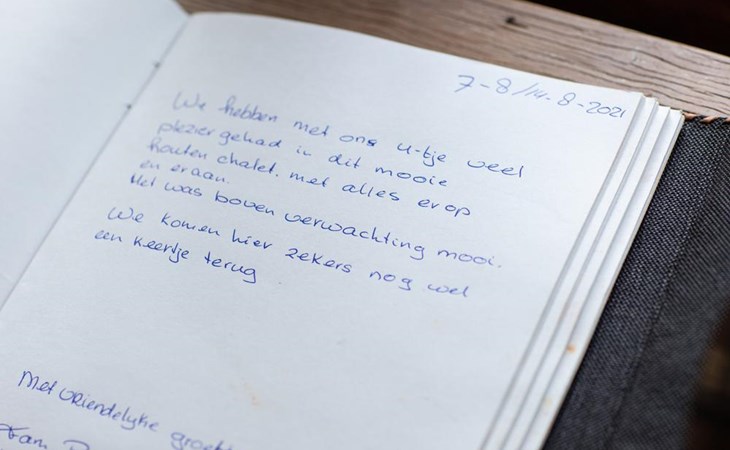 7-8/14-8-2021
We hebben met ons 4-tje veel
plezier gehad in dit mooie
houten chalet. met alles erop
en eraan.
Het was boven verwachting mooi.
We komen hier zekers nog wel
een keertje terug
Met vriendelyke
Fam